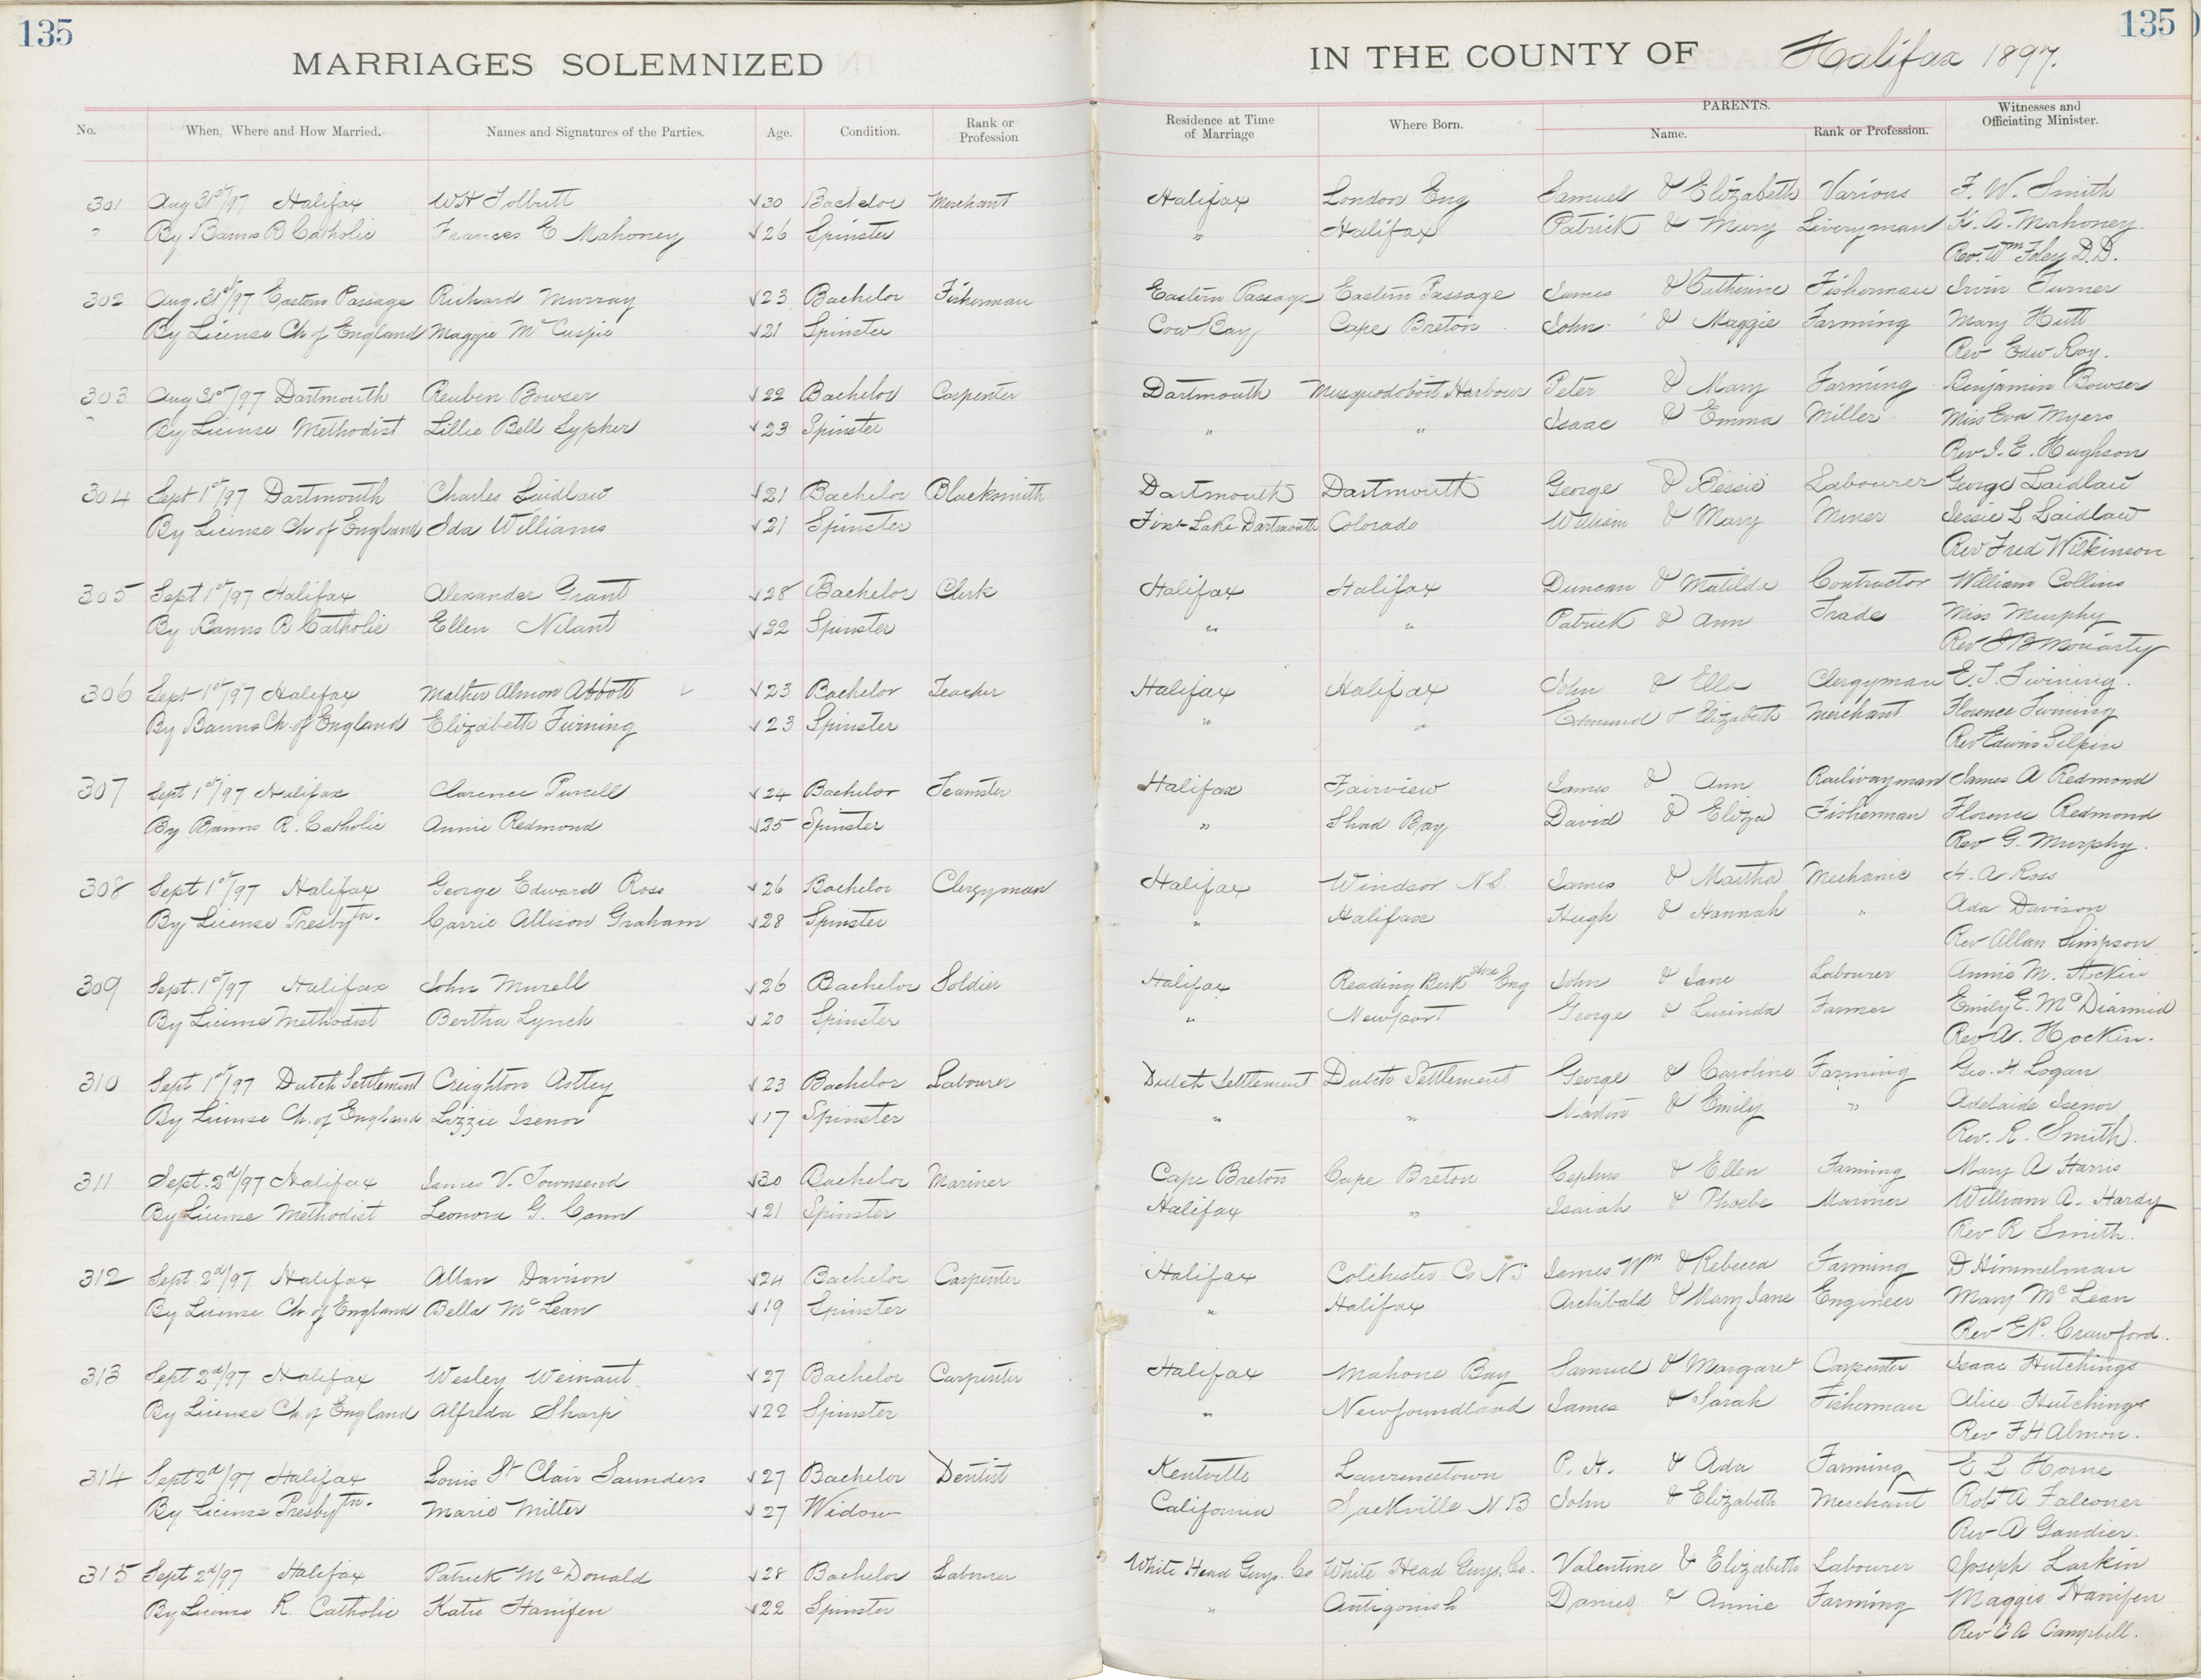 135
135
MARRIAGES SOLEMNIZED IN THE COUNTY OF Halifax 1897.
PARENTS.
No. When, Where and How Married. Names and Signatures of the Parties. Age. Condition. Rank or Profession Residence at Time of Marriage Where Born. Name. Rank or Profession. Witnesses and Officiating Minister.
301 Aug 31st/97 Halifax WH Tolbutt √30 Bachelor Merchant Halifax London Eng Samuel & Elizabeth Various F. W. Smith
" By Banns R Catholic Frances E Mahoney √26 Spinster " Halifax Patrick & Mary Liveryman K. A. Mahoney.
Rev. Wm Foley D.D.
302 Aug. 31st/97 Eastern Passage Richard Murray √23 Bachelor Fisherman Eastern Passage Eastern Passage James & Catherine Fisherman Irvin Turner
By License Ch of England Maggie McCuspic √21 Spinster Cow Bay Cape Breton John & Maggie Farming Mary Hutt
Rev Edw Roy.
303 Aug 31st/97 Dartmouth Reuben Bowser √22 Bachelor Carpenter Dartmouth Musquodoboit Harbour Peter & Mary Farming Benjamin Bowser
" By License Methodist Lillie Bell Sypher √23 Spinster " " Isaac & Emma Miller Miss Eva Myers
Rev I. E. Hughson
304 Sept 1st/97 Dartmouth Charles Laidlaw √21 Bachelor Blacksmith Dartmouth Dartmouth George & Bessie Labourer George Laidlaw
By License Ch of England Ida Williams √21 Spinster First Lake Dartmouth Colorado William & Mary Miner Jessie L Laidlaw
Rev Fred Wilkinson
305 Sept 1st/97 Halifax Alexander Grant √28 Bachelor Clerk Halifax Halifax Duncan & Matilda Contractor William Collins
By Banns R Catholic Ellen Nilant √22 Spinster " " Patrick & Ann Trade Miss Murphy
Rev Moriarty
306 Sept 1st/97 Halifax Mather Almon Abbott √23 Bachelor Teacher Halifax Halifax John & Ella Clergyman E. T. Twining.
By Banns Ch. of England Elizabeth Twining √23 Spinster " " Edmund & Elizabeth Merchant Florence Twining
Rev Edwin Gilpin
307 Sept 1st/97 Halifax Clarence Purcell √24 Bachelor Teamster Halifax Fairview James & Ann Railwayman James A Redmond
By Banns R. Catholic Annie Redmond √25 Spinster " Shad Bay David & Eliza Fisherman Florence Redmond
Rev G. Murphy.
308 Sept 1st/97 Halifax George Edward Ross √26 Bachelor Clergyman Halifax Windsor N.S. James & Martha Mechanic H. A Ross
By License Presbytn. Carrie Allison Graham √28 Spinster " Halifax Hugh & Hannah " Ada Davison
Rev Allan Simpson
309 Sept. 1st/97 Halifax John Murell √26 Bachelor Soldier Halifax Reading Berkshire Eng John & Jane Labourer Annie M. Hockin
By License Methodist Bertha Lynch √20 Spinster " Newport George & Lucinda Farmer Emily E. McDiarmid
Rev A. Hockin.
310 Sept 1st/97 Dutch Settlement Creighton Astley √23 Bachelor Labourer Dutch Settlement Dutch Settlement George & Caroline Farming Geo. H Logan
By License Ch. of England Lizzie Isenor √17 Spinster " " Martin & Emily " Adelaide Isenor
Rev. R. Smith.
311 Sept. 2d/97 Halifax James V. Townsend √30 Bachelor Mariner Cape Breton Cape Breton Cephus & Ellen Farming Mary A Harris
By License Methodist Leonora G. Cann √21 Spinster Halifax " Isaiah & Phoebe Mariner William A. Hardy
Rev R Smith.
312 Sept. 2d/97 Halifax Allan Davison √24 Bachelor Carpenter Halifax Colchester Co NS James Wm & Rebecca Farming D Himmelman
By License Ch of England Bella McLean √19 Spinster " Halifax Archibald & Mary Jane Engineer Mary McLean
Rev E.P. Crawford.
313 Sept 2d/97 Halifax Wesley Weinaut √27 Bachelor Carpenter Halifax Mahone Bay Samuel & Margaret Carpenter Isaac Hutchings
By License Ch of England Alfreda Sharp √22 Spinster " Newfoundland James & Sarah Fisherman Alice Hutchings
Rev F H Almon.
314 Sept 2d/97 Halifax Louis St Clair Saunders √27 Bachelor Dentist Kentville Lawrencetown P. H. & Ada Farming E L Horne
By License Presbytn. Marie Miller √27 Widow California Sackville NB John & Elizabeth Merchant Robt A Falconer
Rev A Gandier.
315 Sept 2d/97 Halifax Patrick McDonald √28 Bachelor Labourer White Head Guys. Co White Head Guys. Co. Valentine & Elizabeth Labourer Joseph Larkin
By License R. Catholic Katie Hanifen √22 Spinster " Antigonish Daniel & Annie Farming Maggie Hanifen
Rev C A Campbell.